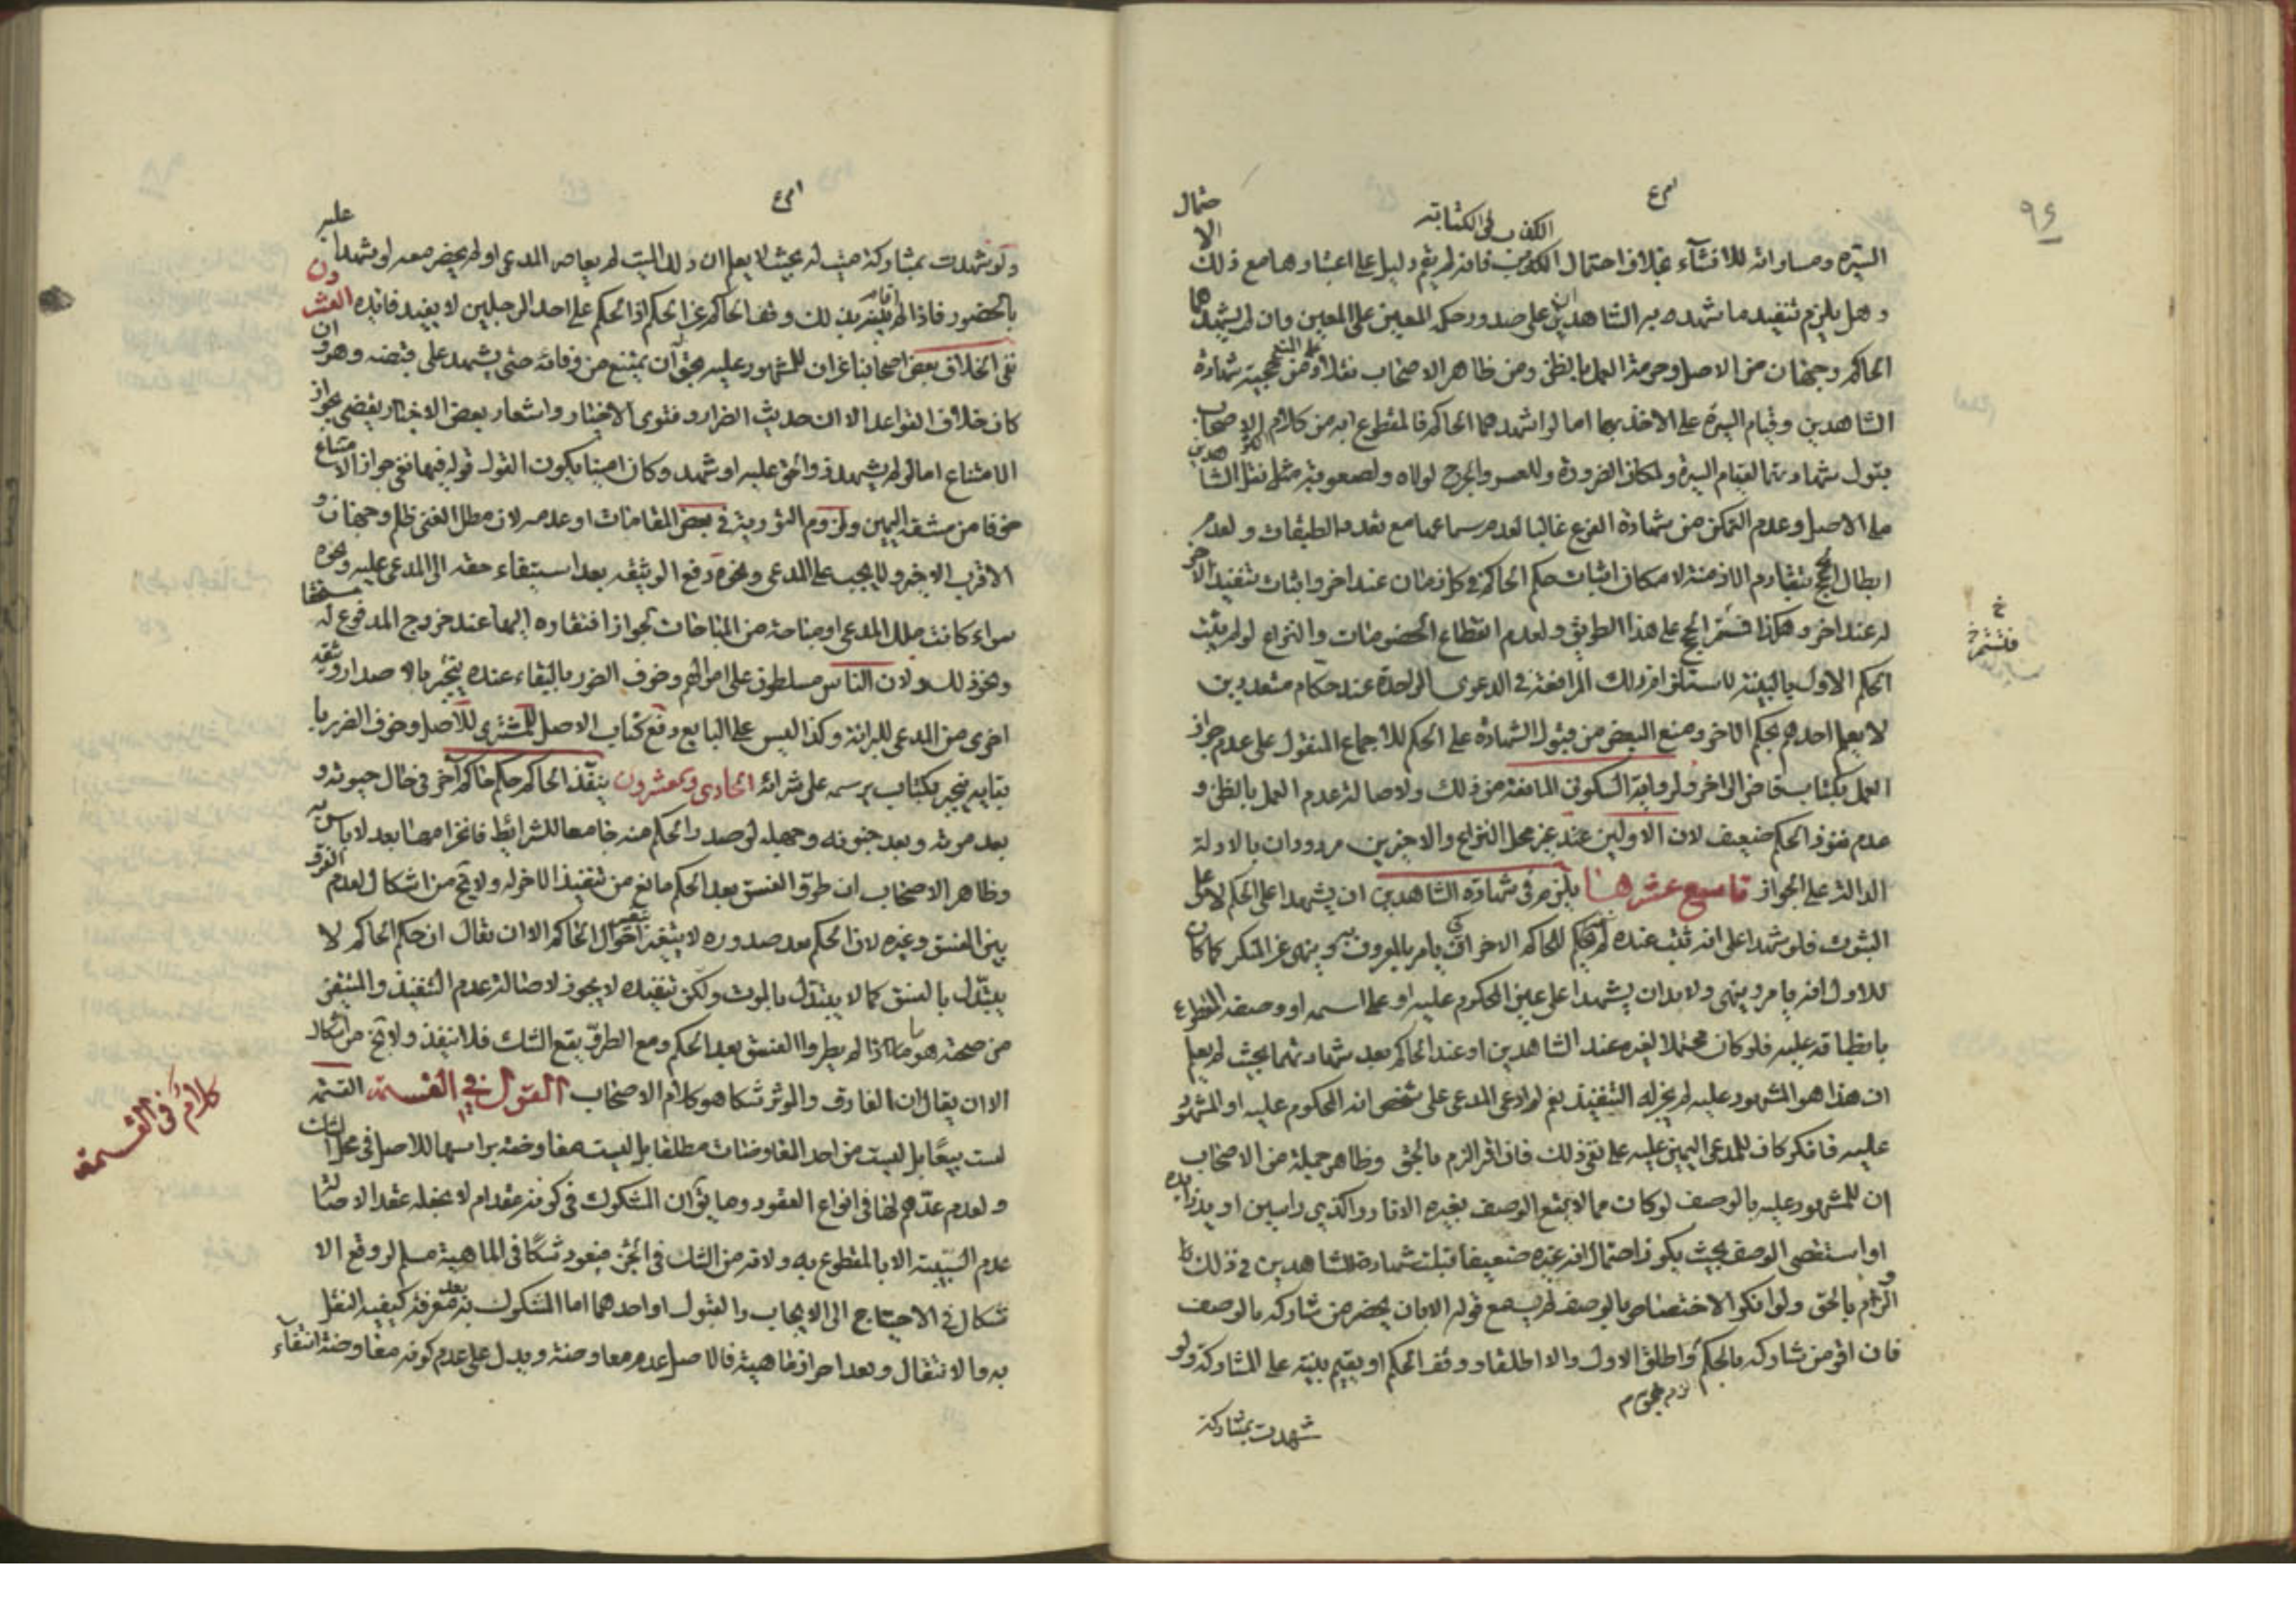 ٩٦
الكذب في الكتابة
السيرة ومساواته للانشاء بخلاف احتمال الكذب فانه لم يقم دليل على اعتبارهما مع ذلك الاحتمال
وهل يلزم تنفيذ ما شهد به الشاهدان على صدور حكمه المعين على المعين وان لم يشهدهما
الحاكم وجهان من الاصل وحرمة العمل بالظن ومن ظاهر الاصحاب نقلا ومن حجية شهادة
الشاهدين وقيام السيرة على الاخذ بهما اما لو اشهدهما الحاكم فالمقطوع به من كلام الاصحاب
قبول شهادتهما لقيام السيرة ولمكان الضرورة وللعسر والحرج لولاه ولصعوبة مثل نقل الشاهدين
على الاصل وعدم التمكن من شهادة الفرع غالبا لعدم سماعها مع تعدد الطبقات ولعدم
ابطال الحجج بتقادم الازمنة لامكان اثبات حكم الحاكم في كل زمان عند اخر واثبات تنفيذ الاخر
له عند اخر وهكذا فتستمر الحجج على هذا الطريق ولعدم انقطاع الخصومات والنزاع لو لم يثبت
الحكم الاول بالبينة لاستلزام ذلك المرافعة في الدعوى الواحدة عند حكام متعددين
لا يعلم احدهم بحكم الاخر ومنع البعض من قبول الشهادة على الحكم للاجماع المنقول على عدم جواز
العمل بكتاب قاض الى اخر ولرواية السكوني المانعة من ذلك ولاصالة عدم العمل بالظن و
عدم نفوذ الحكم ضعيف لان الاولين عند غير محل النزاع والاخيرين مردودان بالادلة
الدالة على الجواز تاسع عشرها يلزم في شهادة الشاهدين ان يشهدا على الحكم لا على
الثبوت فلو شهدا على انه ثبت عنده لم يحكم للحاكم الاخر ان يامر بالمعروف وينهى عن المنكر كما كان
للاول انه يامر وينهى ولابد ان يشهدا على عين المحكوم عليه او على اسمه او وصفه المقطوع
بانطباقه عليه فلو كان محتملا لغيره عند الشاهدين او عند الحاكم بعد شهادتهما بحيث لم يعلم
ان هذا هو المشهود عليه لم يجز له التنفيذ نعم لو ادعى المدعى على شخص انه المحكوم عليه او المشهود
عليه فانكر كان للمدعى اليمين عليه على نفي ذلك فان اقر الزم بالحق وظاهر جملة من الاصحاب
ان المشهود عليه بالوصف لو كان مما لا يمنع الوصف بغيره الا نادرا كذي راسين او يد زايدة
او استقصى الوصف بحيث يكون احتمال انه غيره ضعيفا قبلت شهادة الشاهدين في ذلك و
الزم بالحق ولو انكر الاختصاص بالوصف لم يسمع قوله الا بان يحضر من شاركه بالوصف
فان اقر من شاركه بالحكم واطلق الاول والا اطلقا ووقف الحكم او يقيم بينة على المشاركة ولو
شهدت بمشاركة
ولو شهدت بمشاركة ميت له بحيث لا يعلم ان ذلك الميت لم يعاصر المدعى او لم يحضر معه لو شهدا عليه
بالحضور فاذا لم يقر بذلك وقف الحاكم عن الحكم اذ الحكم على احد الرجلين لا يفيد فائدة العشرون
نفى الخلاف بعض اصحابنا عن ان للمشهود عليه بحق ان يمتنع من وفائه حتى يشهد على قبضه وهو وان
كان خلاف القواعد الا ان حديث الضرار وفتوى الاخيار واشعار بعض الاخبار يقضي بجواز
الامتناع اما لو لم يشهد ذو الحق عليه او شهد وكان امينا يكون القول قوله فيهما نفي جواز الامتناع
خوفا من مشقة اليمين ولزوم التورية في بعض المقامات او عدمه لان مطل الغنى ظلم وجهان و
الاقرب الاخير ولا يجب على المدعى ونحوه دفع الوثيقة بعد استيفاء حقه الى المدعى عليه ونحوه
سواء كانت ملك المدعى او مباحة من المباحات لجواز افتقاره اليها عند خروج المدفوع له مستحقا
ونحو ذلك ولان الناس مسلطون على اموالهم وخوف الضرر بالبقاء عنده ينجبر بالاصدار وثيقة
اخرى من المدعى للبرائة وكذا ليس على البايع دفع كتاب الاصل للمشترى للاصل وخوف الضرر با
بقائه ينجبر بكتاب يرسمه على شرائه الحادي وعشرون ينفذ الحاكم حكم حاكم آخر في حال حيوته و
بعد موته وبعد جنونه وجهله لو صدر الحكم منه جامعا للشرائط فانخرامها بعد لا باس به
وظاهر الاصحاب ان طرو الفسق بعد الحكم مانع من تنفيذ الاخر له ولا يخ من اشكال لعدم الفرق
بين الفسق وغيره لان الحكم بعد صدوره لا يتغير بتغير احوال الحاكم الا ان يقال ان حكم الحاكم لا
يبتدل بالفسق كما لا يبتدل بالموت ولكن تنفيذه لا يجوز لاصالة عدم التنفيذ والمتيقن
من صحته هو ما اذا لم يطرو الفسق بعد الحكم ومع الطرو يقع الشك فلا ينفذ ولا يخ من اشكال
الا ان يقال ان الفارق والموثر شكا هو كلام الاصحاب القول في القسمة القسمة
ليست بيعا بل ليست من احد المعاوضات مطلقا بل ليست معاوضة براسها للاصل في محل الشك
ولعدم عدهم لها في انواع العقود وما يق ان المشكوك في كونه عقدا م لا يجعله عقدا لاصالة
عدم السببية الا بالمقطوع به ولانه من الشك في الجزء فيعود شكا في الماهية مسلم لو وقع الا
شكال في الاحتياج الى الايجاب والقبول او احدهما اما المشكوك به بعد معرفة كيفية النقل
به والانتقال وبعد احراز ماهيته فالاصل عدم معاوضته ويدل على عدم كونه معاوضة انتفاء
كلام في القسمة